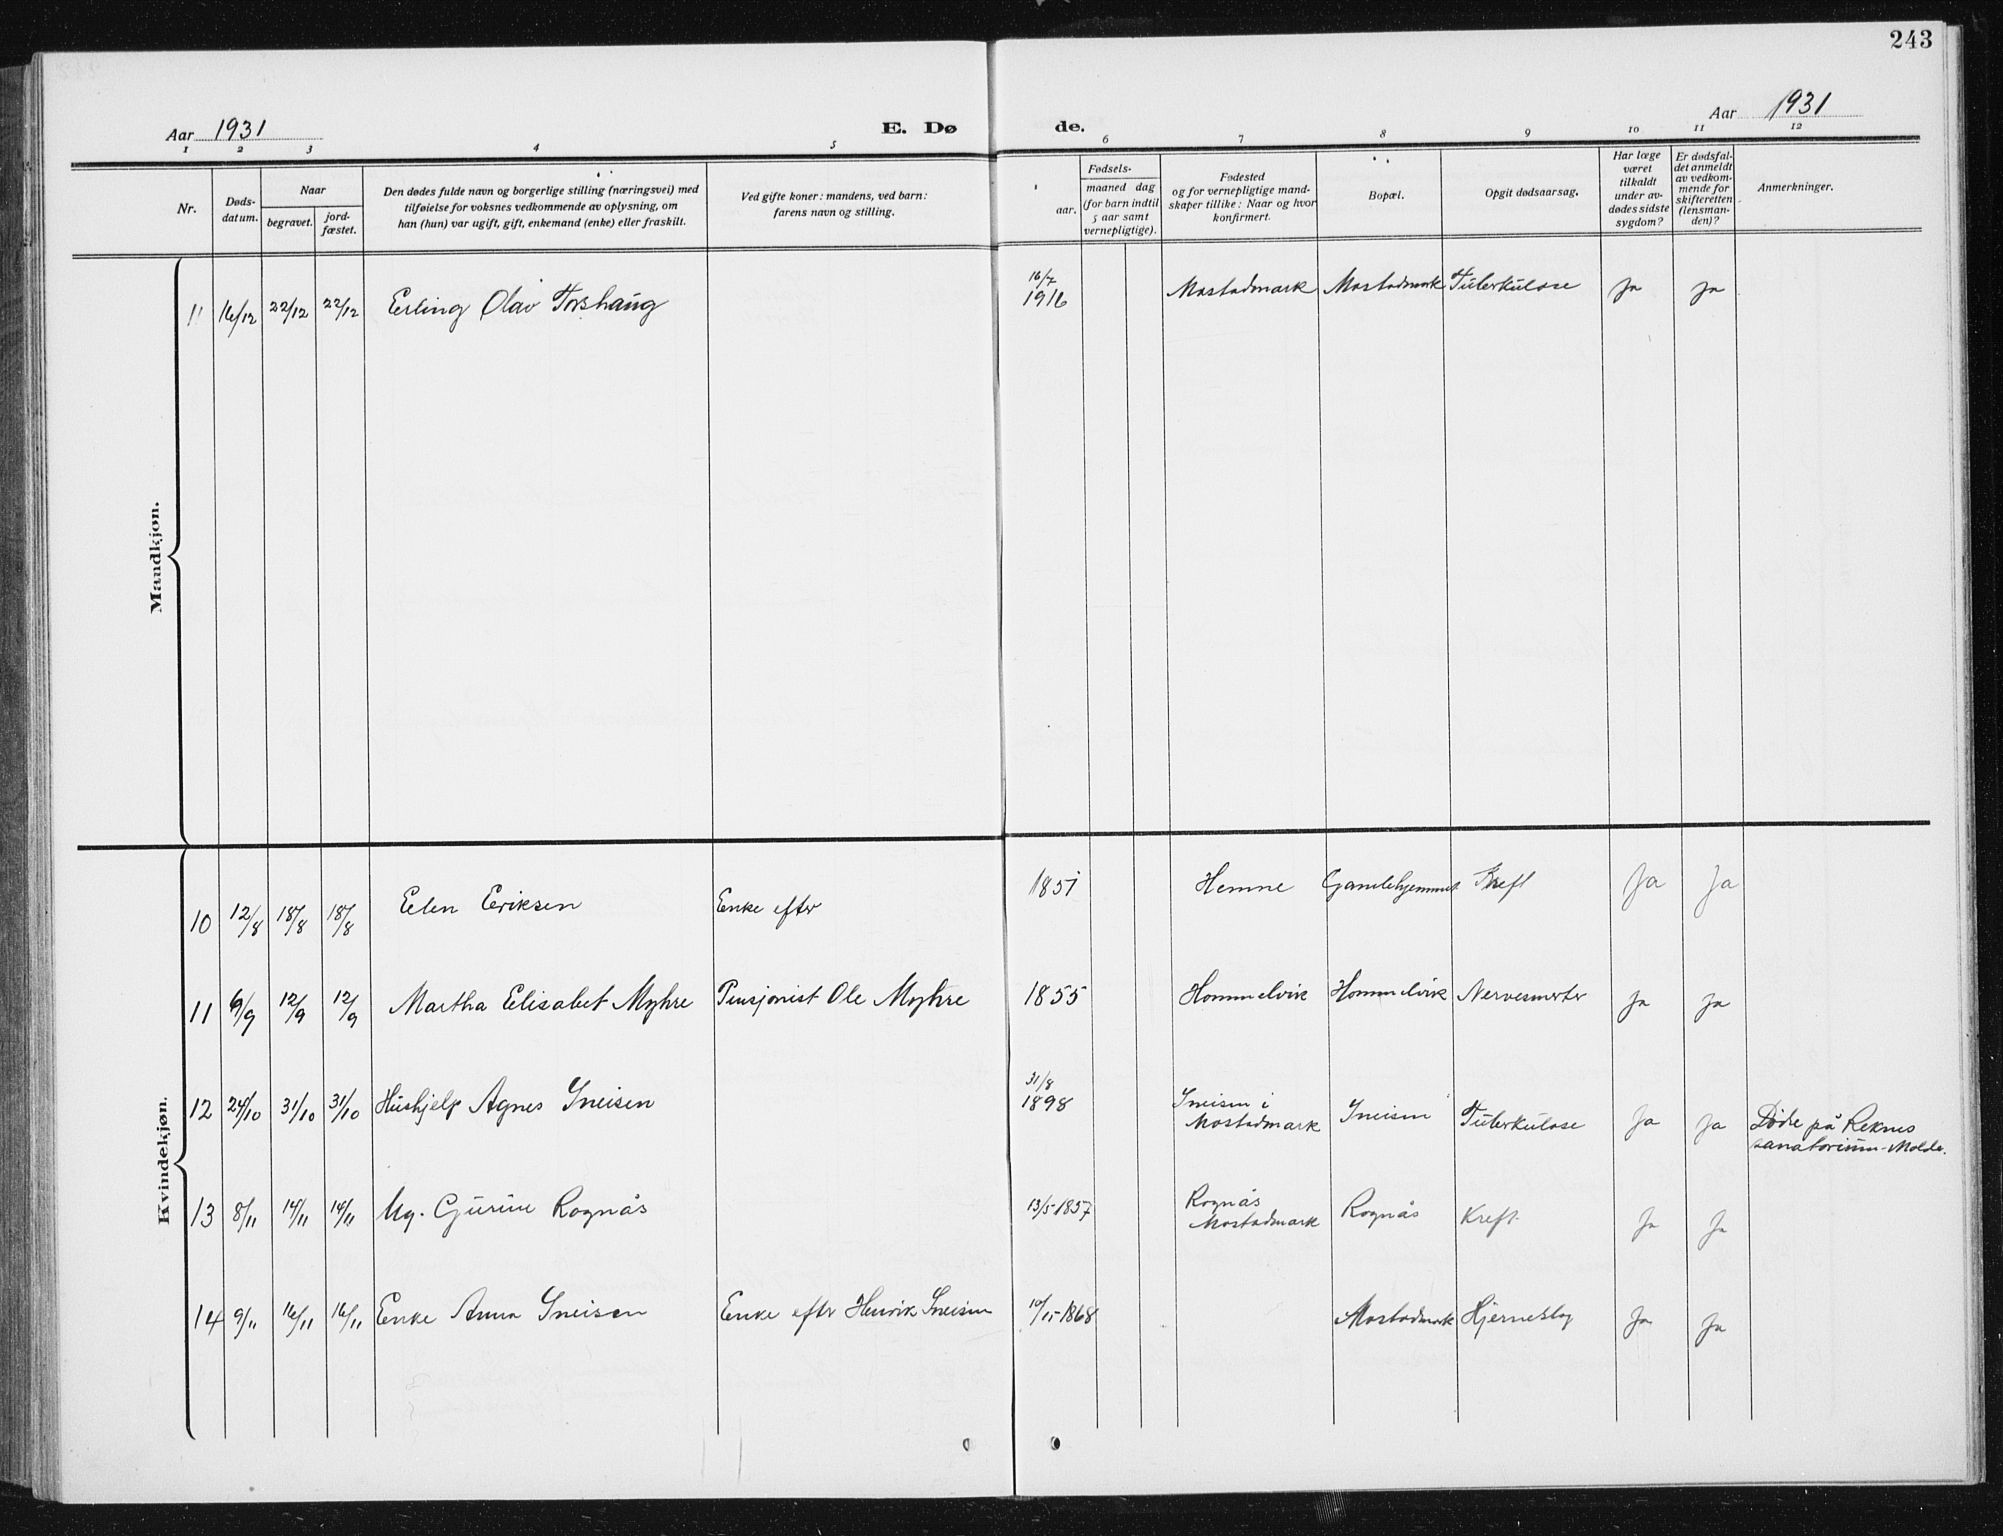 243
Aar 1931
E. Dø
de.
Aar 1931
1 2 3 4 5 6 7 8 9 10 11 12
Nr.
Døds-
datum.
Naar
begravet.
jord-
fæstet.
Den dødes fulde navn og borgerlige stilling (næringsvei) med
tilføielse for voksnes vedkommende av oplysning, om
han (hun) var ugift, gift, enkemand (enke) eller fraskilt.
Ved gifte koner: mandens, ved barn:
farens navn og stilling.
aar.
Fødsels-
maaned dag
(for barn indtil
5 aar samt
vernepligtige).
Fødested
og for vernepligtige mand-
skaper tillike: Naar og hvor
konfirmert.
Bopæl.
Opgit dødsaarsag.
Har læge
været
tilkaldt
under av-
dødes sidste
sygdom?
Er dødsfal-
det anmeldt
av vedkom-
mende for
skifteretten
(lensman-
den)?
Anmerkninger.
Mandkjøn.
11 16/12 22/12 22/12 Erling Olav Torshaug 16/7 1916 Mostadmark Mostadmark Tuberkulose Ja Ja
Kvindekjøn.
10 12/8 18/8 18/8 Elen Eriksen Enke efter 1851 Hemne Gamlehjemmet Kreft Ja Ja
11 6/9 12/9 12/9 Martha Elisabet Myhre Pensjonist Ole Myhre 1855 Hommelvik Hommelvik Nervesmerter Ja Ja
12 24/10 31/10 31/10 Hushjelp Agnes Sneisen 31/8 1898 Sneisen i
Mostadmark Sneisen Tuberkulose Ja Ja Døde på Reknes
sanatorium-Molde.
13 8/11 14/11 14/11 Ug. Gurine Rognås 13/5-1857 Rognås
Mostadmark Rognås Kreft Ja Ja
14 9/11 16/11 16/11 Enke Anna Sneisen Enke efter Henrik Sneisen 1868 Mostadmark Hjerneslag Ja Ja